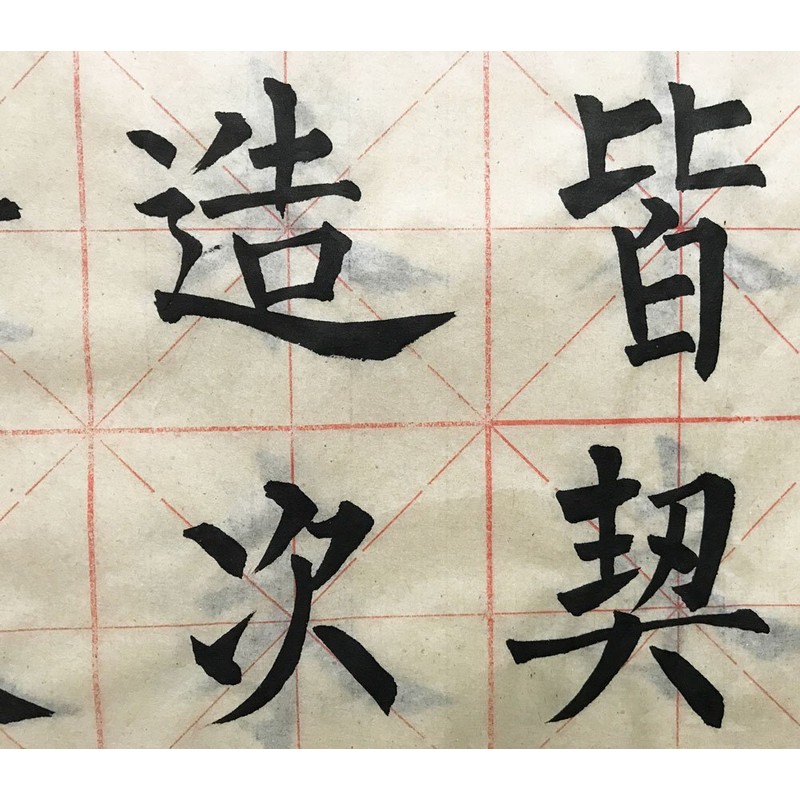 皆契
造次